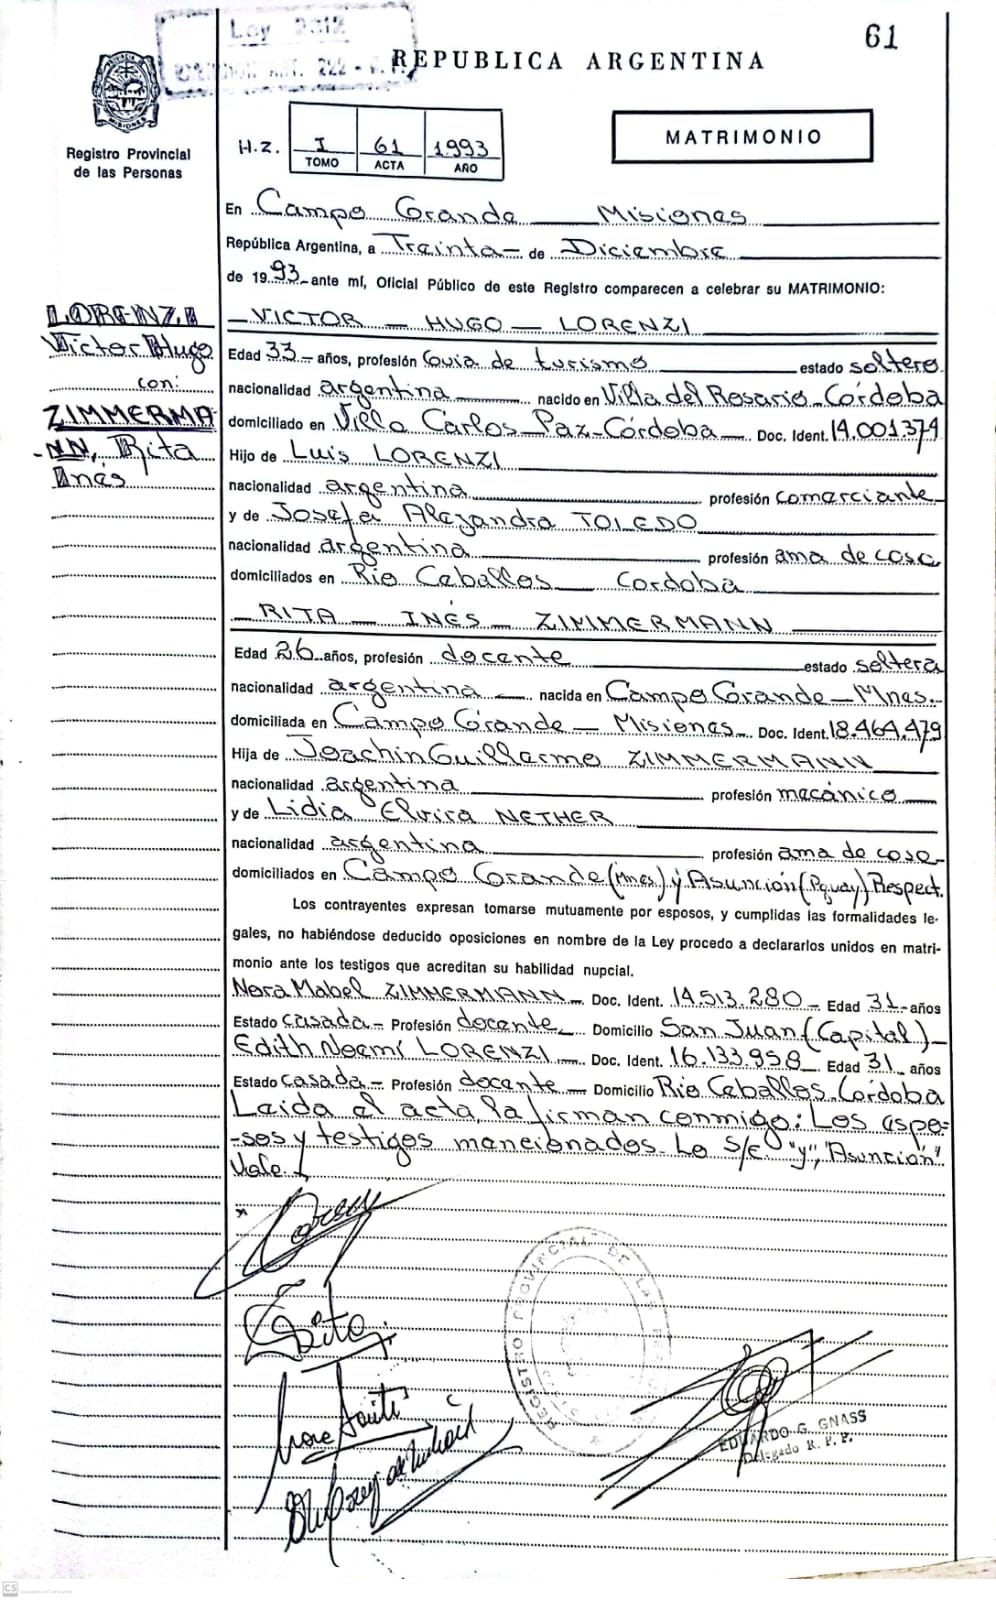 61
Ley 2312
ART. 222 -
REPUBLICA ARGENTINA
MISIONES
Registro Provincial
de las Personas
H.Z. I 61 1993
TOMO ACTA AÑO
MATRIMONIO
En Campo Grande Misiones
República Argentina, a Treinta - de Diciembre
de 1993 - ante mí, Oficial Público de este Registro comparecen a celebrar su MATRIMONIO:
LORENZI
Victor Hugo
con:
ZIMMERMA
-NN, Rita
Inés
- VICTOR - HUGO - LORENZI
Edad 33 - años, profesión Guia de turismo estado soltero
nacionalidad argentina nacido en Villa del Rosario - Córdoba
domiciliado en Villa Carlos Paz - Córdoba - Doc. Ident. 14.001.374
Hijo de Luis LORENZI
nacionalidad argentina profesión comerciante
y de Josefa Alejandra TOLEDO
nacionalidad argentina profesión ama de casa
domiciliados en Rio Ceballos Cordoba
- RITA - INÉS - ZIMMERMANN
Edad 26 años, profesión docente estado soltera
nacionalidad argentina - nacida en Campo Grande - Mnes.
domiciliada en Campo Grande - Misiones - Doc. Ident. 18.464.479
Hija de Joachin Guillermo ZIMMERMANN
nacionalidad argentina profesión mecánico
y de Lidia Elvira NETHER
nacionalidad argentina profesión ama de casa -
domiciliados en Campo Grande (Mnes.) y Asunción (Pguay) Respect.
Los contrayentes expresan tomarse mutuamente por esposos, y cumplidas las formalidades le-
gales, no habiéndose deducido oposiciones en nombre de la Ley procedo a declararlos unidos en matri-
monio ante los testigos que acreditan su habilidad nupcial.
Nora Mabel ZIMMERMANN - Doc. Ident. 14.513.280 - Edad 31 - años
Estado casada - Profesión docente - Domicilio San Juan (Capital) -
Edith Noemí LORENZI - Doc. Ident. 16.133.958 - Edad 31 años
Estado casada - Profesión docente - Domicilio Rio Ceballos - Córdoba
Leida el acta, la firman conmigo: Los espo-
-sos y testigos mencionados. Lo S/E. "y", "Asunción"
Vale.
Rita
REGISTRO PROVINCIAL DE LAS
EDUARDO G. GNASS
Delegado R. P. P.
CS